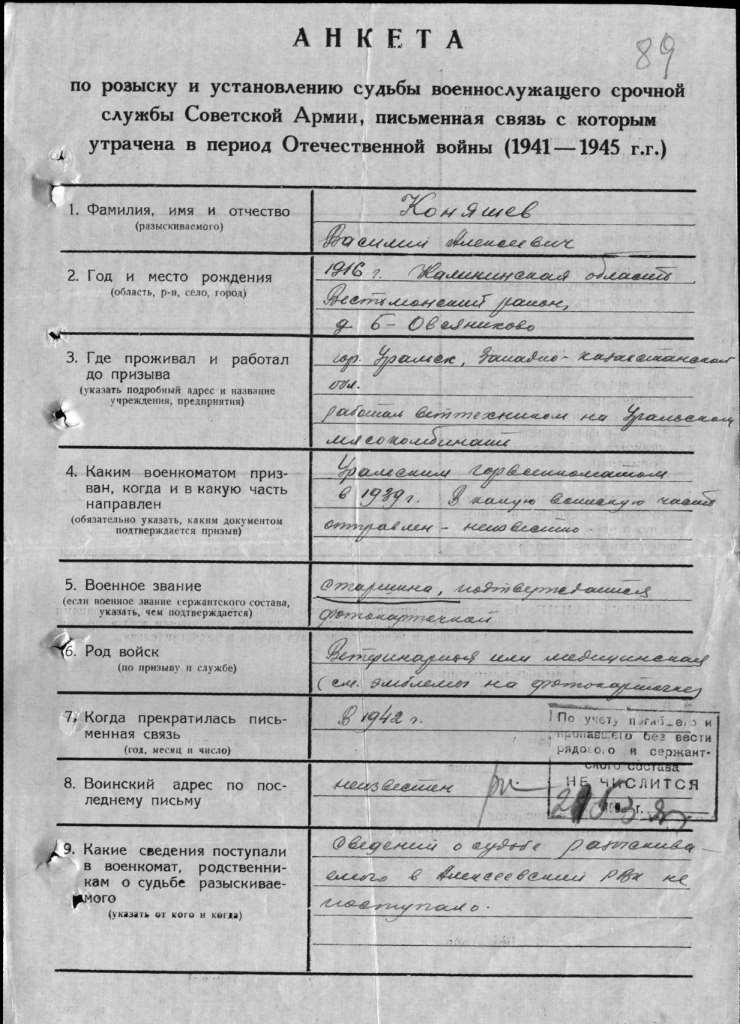 АНКЕТА
89
по розыску и установлению судьбы военнослужащего срочной
службы Советской Армии, письменная связь с которым
утрачена в период Отечественной войны (1941—1945 г.г.)
1. Фамилия, имя и отчество
(разыскиваемого)
Коняшев
Василий Алексеевич
2. Год и место рождения
(область, р-н, село, город)
1916 г. Калининская область,
район,
д. Б-Овсяниково
3. Где проживал и работал
до призыва
(указать подробный адрес и название
учреждения, предприятия)
гор. Уральск, Западно-Казахстанской
обл.
работал веттехником на Уральском
мясокомбинате
4. Каким военкоматом приз-
ван, когда и в какую часть
направлен
(обязательно указать, каким документом
подтверждается призыв)
Уральским горвоенкоматом
в 1939 г. В какую воинскую часть
отправлен - неизвестно.
5. Военное звание
(если военное звание сержантского состава,
указать, чем подтверждается)
старшина, подтверждается
фотокарточкой
6. Род войск
(по призыву и службе)
Ветеринарная или медицинская
(см. эмблемы на фотокарточке)
7. Когда прекратилась пись-
менная связь
(год, месяц и число)
В 1942 г.
По учету погибшего и
пропавшего без вести
рядового и сержант-
ского состава
НЕ ЧИСЛИТСЯ
г.
8. Воинский адрес по пос-
леднему письму
неизвестен
9. Какие сведения поступали
в военкомат, родственни-
кам о судьбе разыскивае-
мого
(указать от кого и когда)
Сведений о судьбе разыскива-
емого в Алексеевский РВК не
поступало.